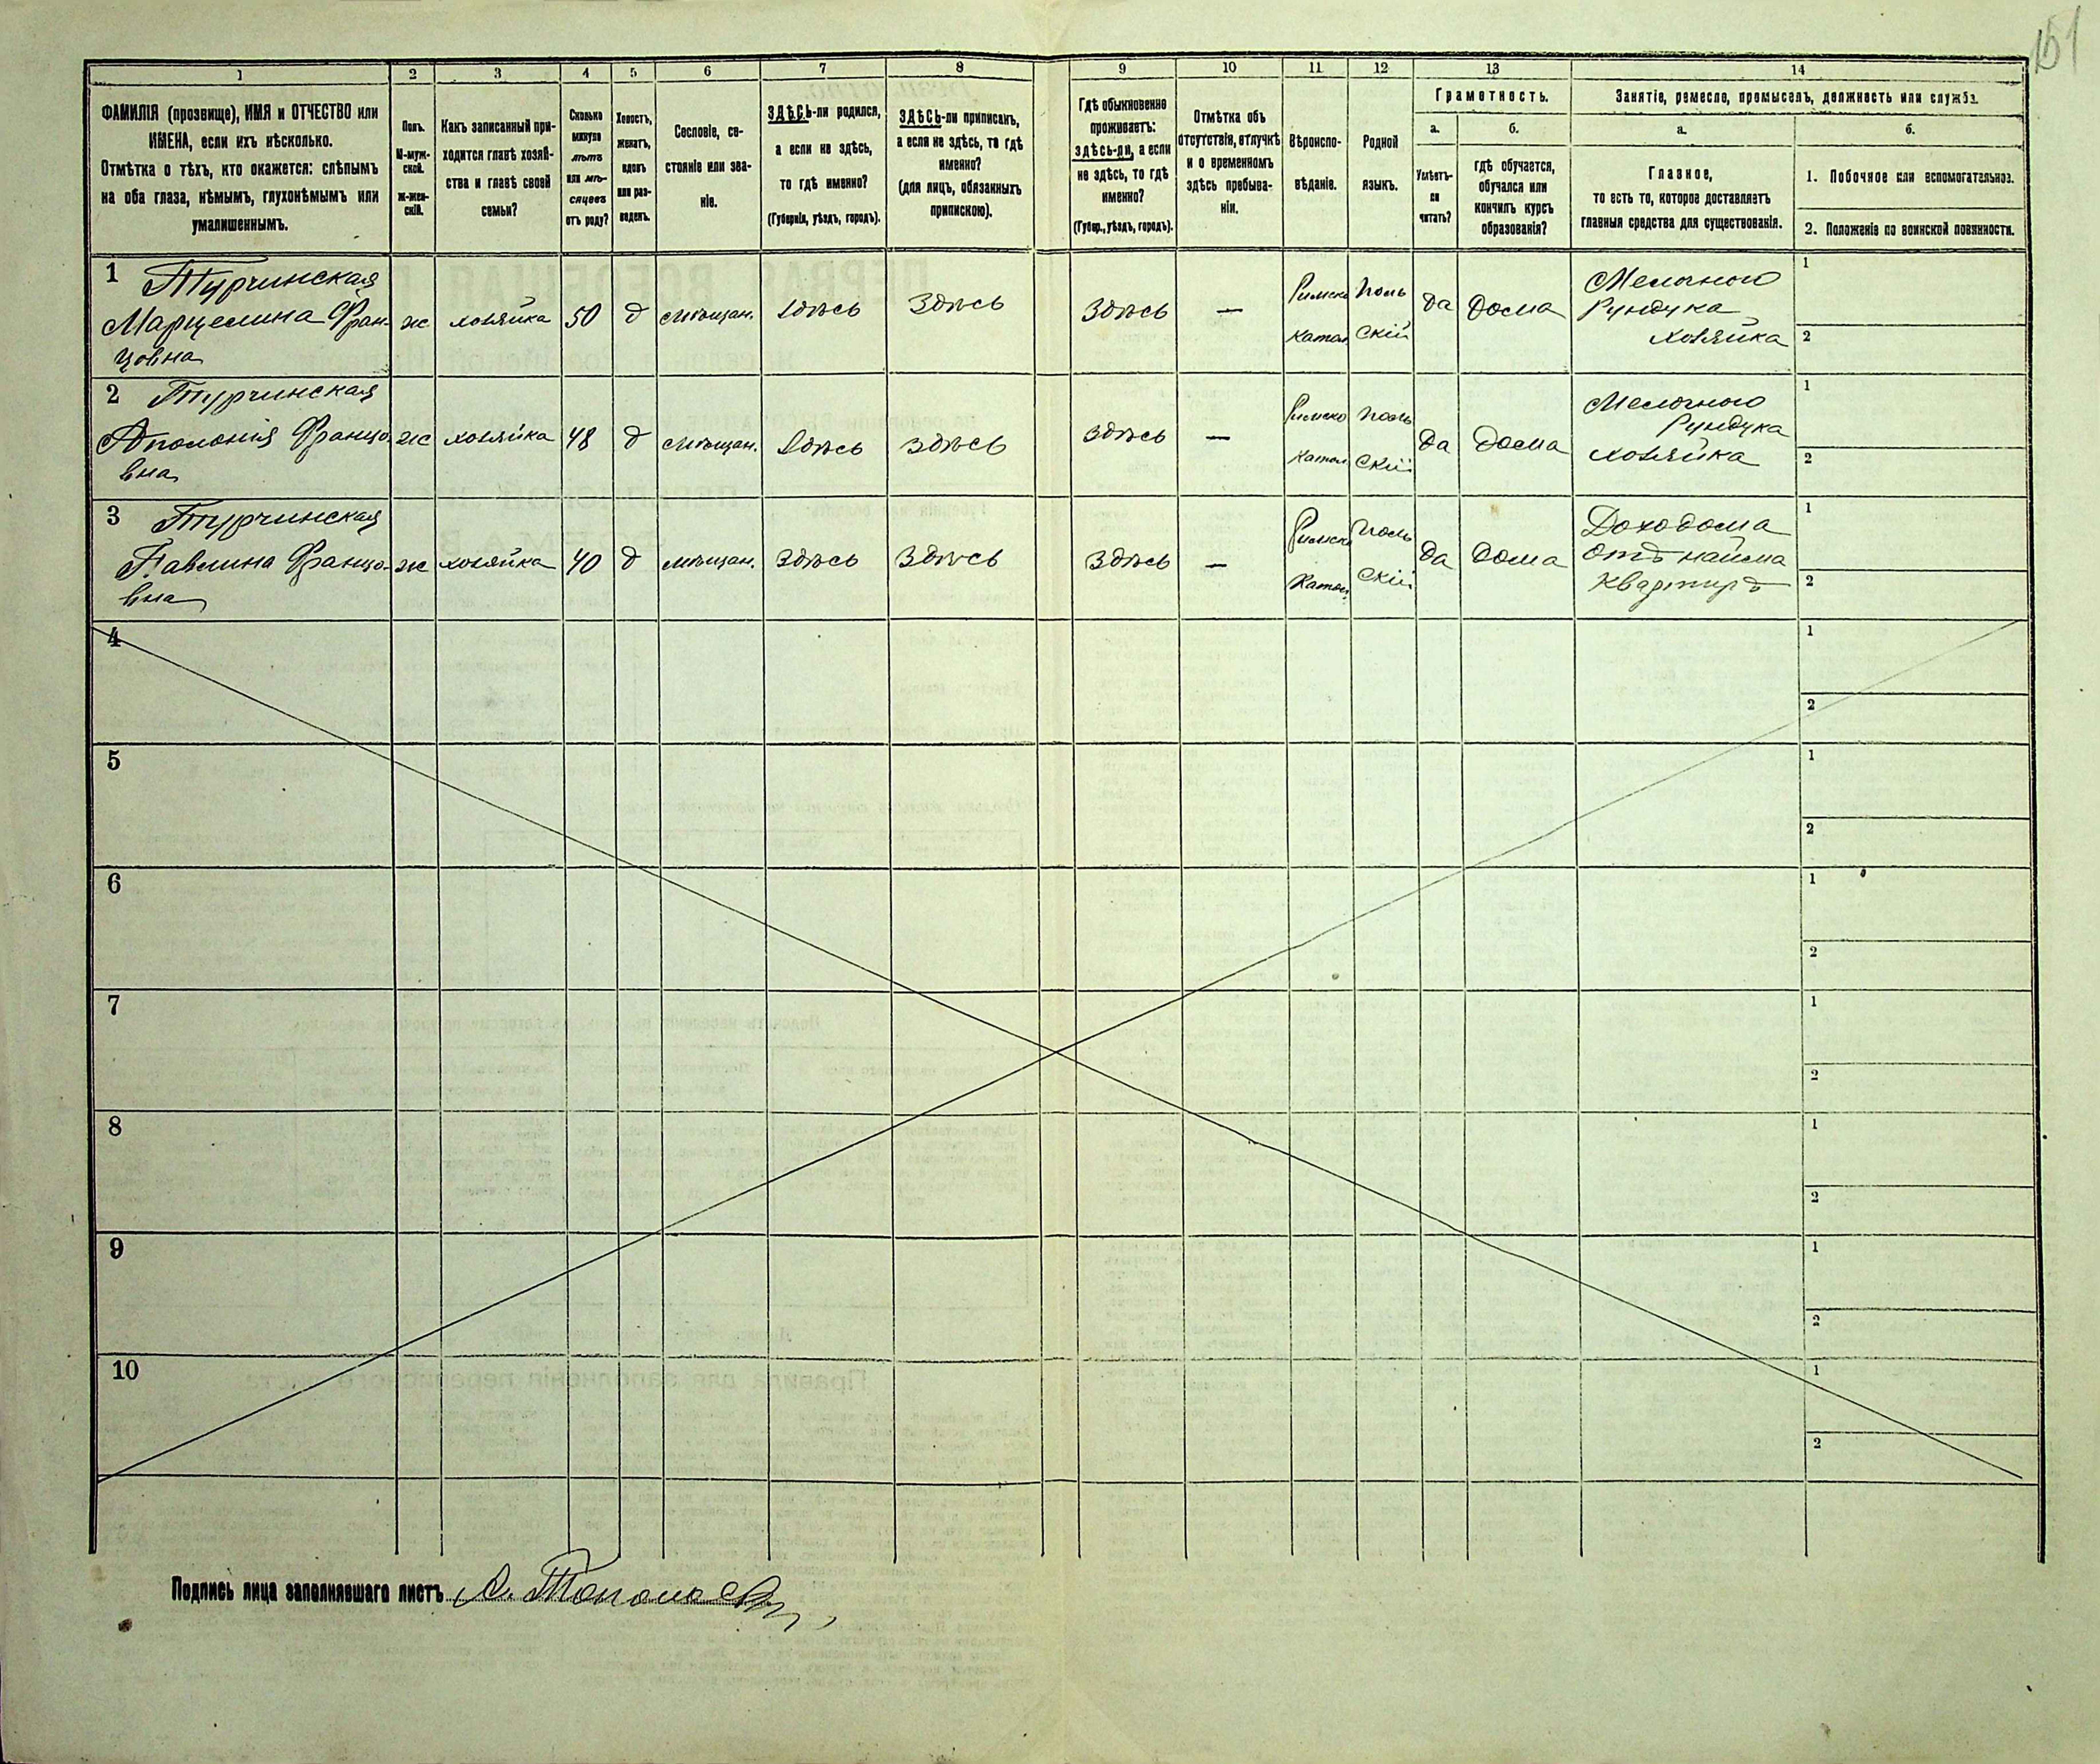 151
1 2 3 4 5 6 7 8 9 10 11 12 13 14
ФАМИЛІЯ (прозвище), ИМЯ и ОТЧЕСТВО или
ИМЕНА, если ихъ нѣсколько.
Отмѣтка о тѣхъ, кто окажется: слѣпымъ
на оба глаза, нѣмымъ, глухонѣмымъ или
умалишеннымъ.
Полъ.
М-муж-
ской.
Ж-жен-
скій.
Какъ записанный при-
ходится главѣ хозяй-
ства и главѣ своей
семьи?
Сколько
минуло
лѣтъ
или мѣ-
сяцевъ
отъ роду?
Холостъ,
женатъ,
вдовъ
или раз-
веденъ.
Сословіе, со-
стояніе или зва-
ніе.
ЗДѢСЬ-ли родился,
а если не здѣсь,
то гдѣ именно?
(Губернія, уѣздъ, городъ).
ЗДѢСЬ-ли приписанъ,
а если не здѣсь, то гдѣ
именно?
(для лицъ, обязанныхъ
припискою).
Гдѣ обыкновенно
проживаетъ:
здѣсь-ли, а если
не здѣсь, то гдѣ
именно?
(Губер., уѣздъ, городъ).
Отмѣтка объ
отсутствіи, отлучкѣ
и о временномъ
здѣсь пребыва-
ніи.
Вѣроиспо-
вѣданіе.
Родной
языкъ.
Грамотность.
а.
Умѣетъ-
ли
читать?
б.
гдѣ обучается,
обучался или
кончилъ курсъ
образованія?
Занятіе, ремесло, промыселъ, должность или служба.
а.
Главное,
то есть то, которое доставляетъ
главныя средства для существованія.
б.
1. Побочное или вспомогательное.
2. Положеніе по воинской повинности.
1 Турчинская
Марцелина Фран-
цовна
ж
хозяйка
50
д
мѣщан.
Здѣсь
Здѣсь
Здѣсь
—
Римско
Катол
Поль
скій
да
Дома
Мелочного
Рундука
хозяйка
1
2
2 Турчинская
Аполонія Францо-
вна
ж
хозяйка
48
д
мѣщан.
Здѣсь
Здѣсь
Здѣсь
—
Римско
Катол
Поль
скій
да
Дома
Мелочного
Рундука
хозяйка
1
2
3 Турчинская
Павлина Францо-
вна
ж
хозяйка
40
д
мѣщан.
Здѣсь
Здѣсь
Здѣсь
—
Римско
Катол.
Поль
скій
да
Дома
Доходома
отъ найма
Квартиръ
1
2
4
1
2
5
1
2
6
1
2
7
1
2
8
1
2
9
1
2
10
1
2
Подпись лица заполнявшаго листъ